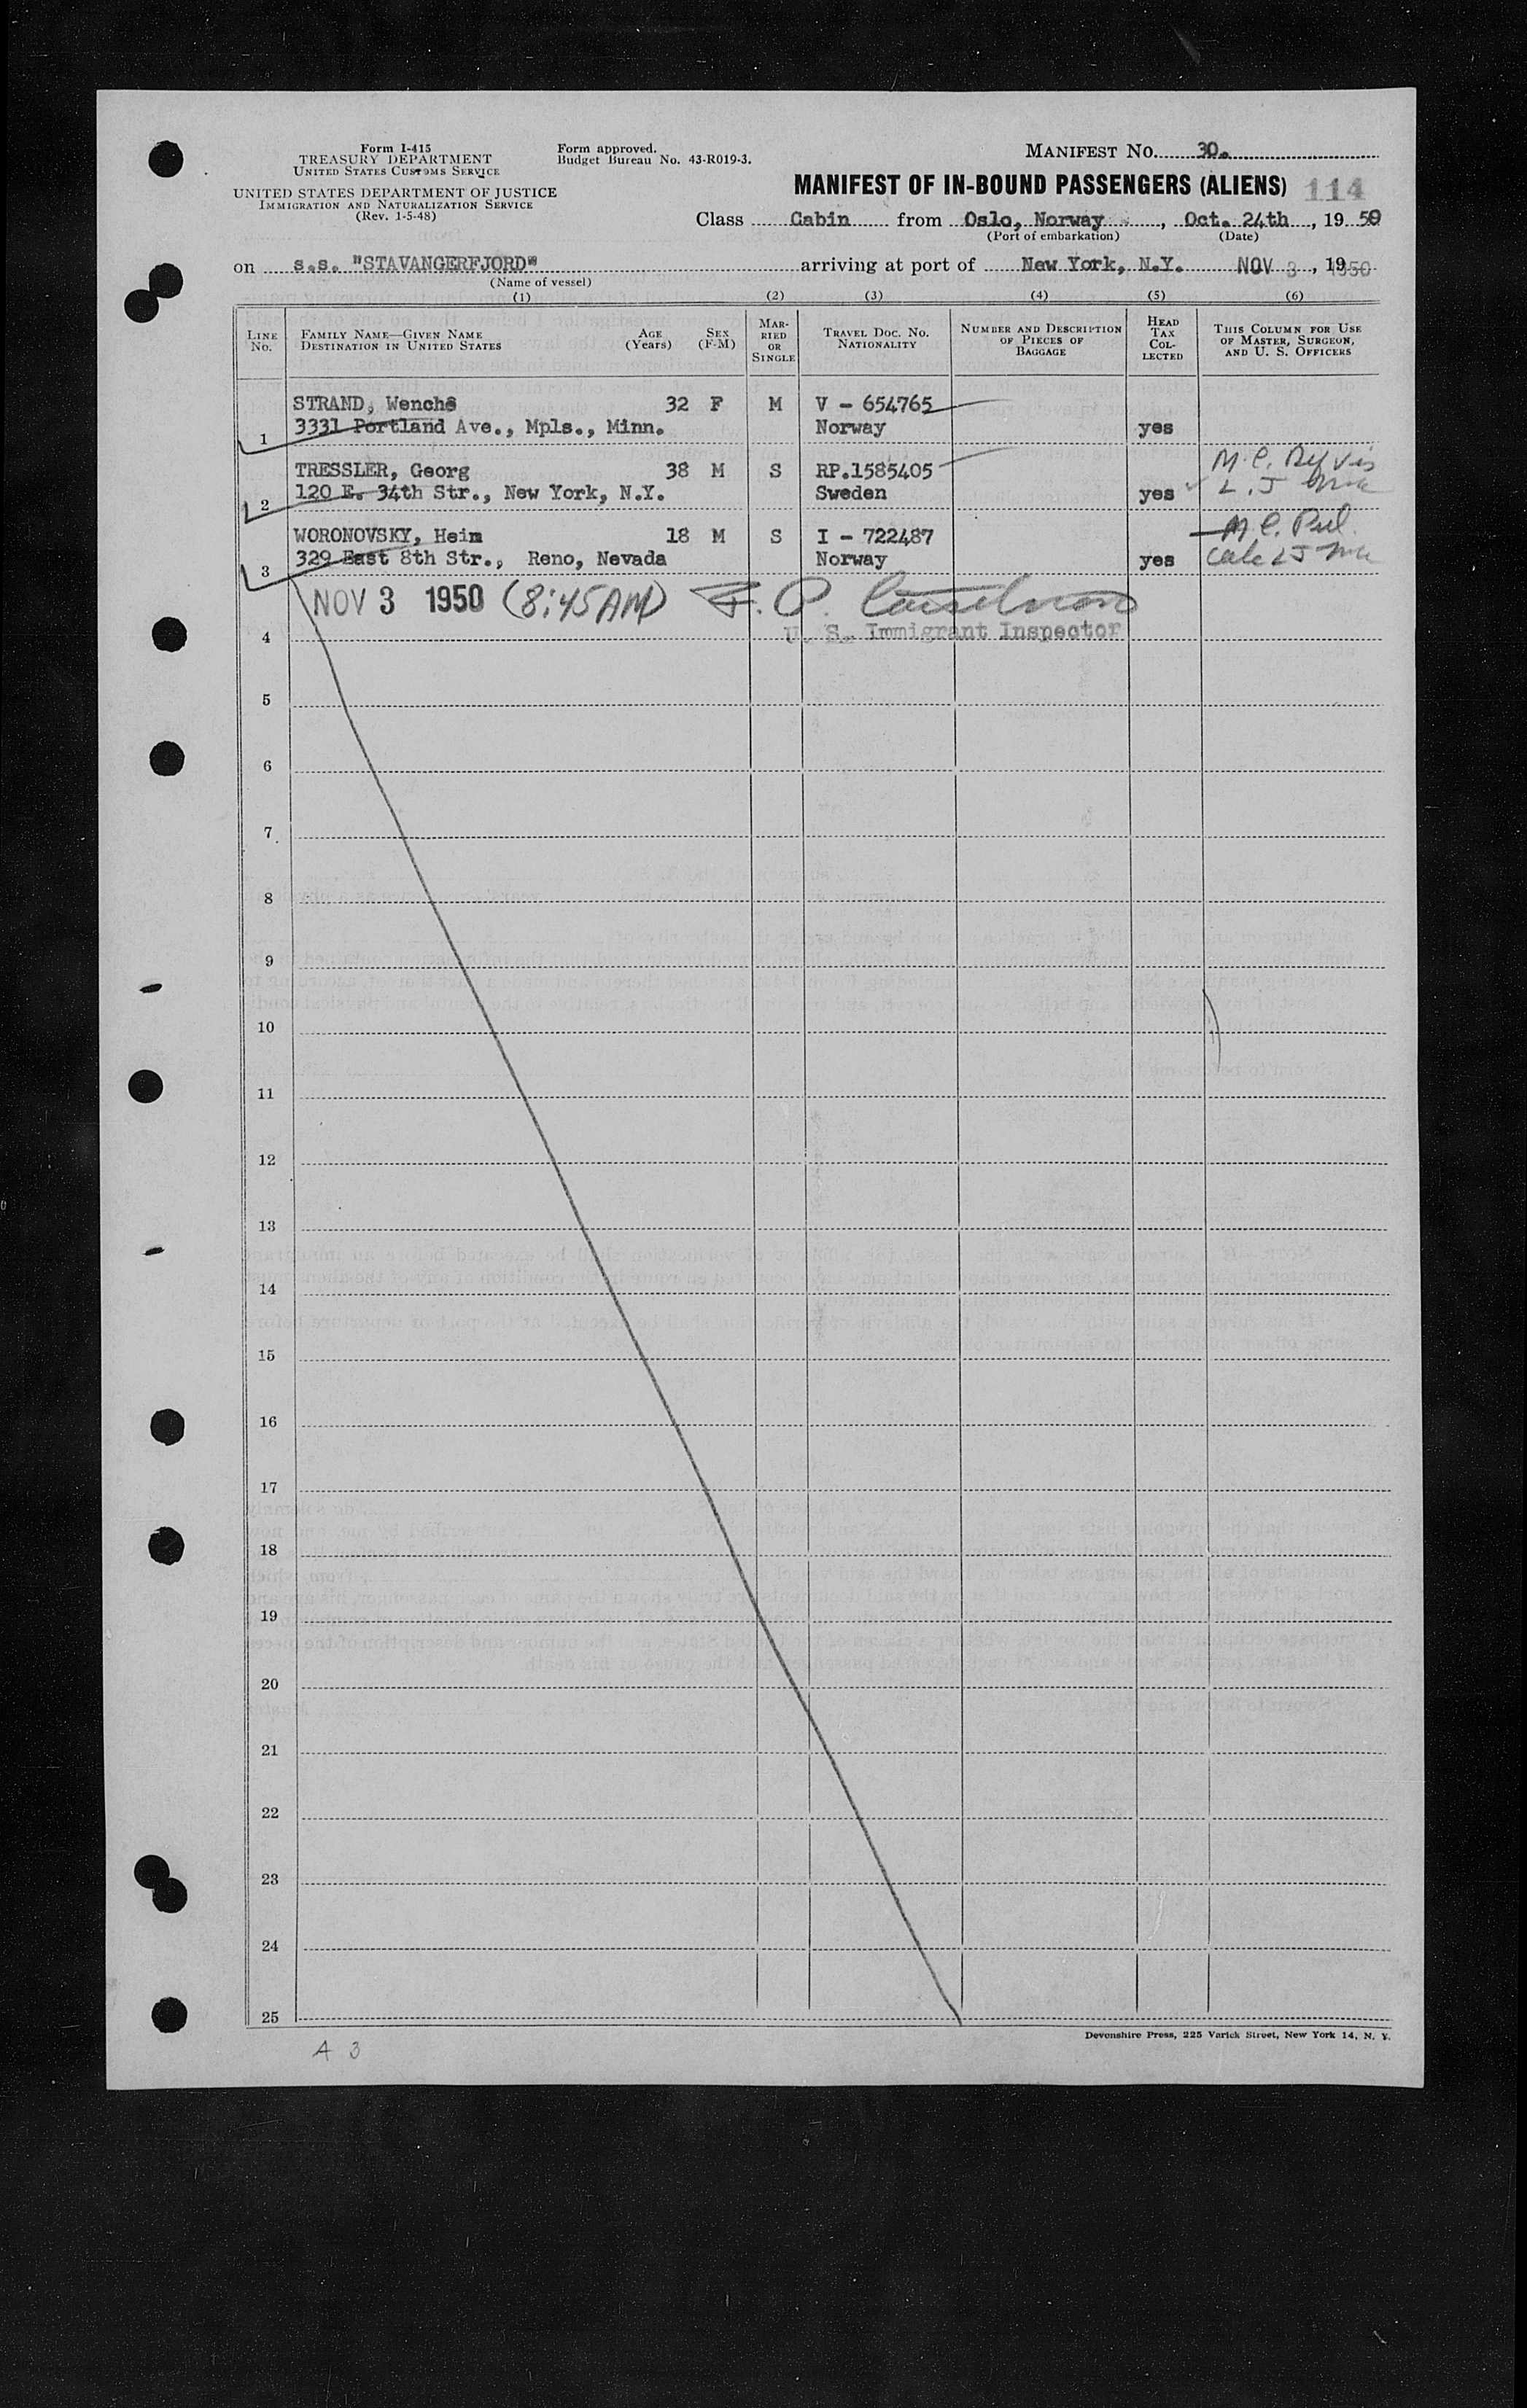 Form I-415
TREASURY DEPARTMENT
UNITED STATES CUSTOMS SERVICE
UNITED STATES DEPARTMENT OF JUSTICE
IMMIGRATION AND NATURALIZATION SERVICE
(Rev. 1-5-48)
Form approved.
Budget Bureau No. 43-R019-3.
MANIFEST NO. 30.
MANIFEST OF IN-BOUND PASSENGERS (ALIENS) 114
Class Cabin from Oslo, Norway, Oct. 24th, 19 50
(Port of embarkation) (Date)
on s.s. "STAVANGERFJORD" arriving at port of New York, N.Y. NOV 3, 19 1950
(Name of vessel)
(1) (2) (3) (4) (5) (6)
LINE NO. FAMILY NAME—GIVEN NAME DESTINATION IN UNITED STATES AGE (Years) SEX (F-M) MARRIED OR SINGLE TRAVEL DOC. NO. NATIONALITY NUMBER AND DESCRIPTION OF PIECES OF BAGGAGE HEAD TAX COLLECTED THIS COLUMN FOR USE OF MASTER, SURGEON, AND U. S. OFFICERS
STRAND, Wenche 32 F M V - 654765
1 3331 Portland Ave., Mpls., Minn. Norway yes
TRESSLER, Georg 38 M S RP.1585405 M.C.
2 120 E. 34th Str., New York, N.Y. Sweden yes L.J
WORONOVSKY, Heim 18 M S I - 722487 M.C.
3 329 East 8th Str., Reno, Nevada Norway yes
NOV 3 1950 (8:45 AM) F. P.
4 U. S. Immigrant Inspector
5
6
7
8
9
10
11
12
13
14
15
16
17
18
19
20
21
22
23
24
25
Devonshire Press, 225 Varick Street, New York 14, N. Y.
A 3